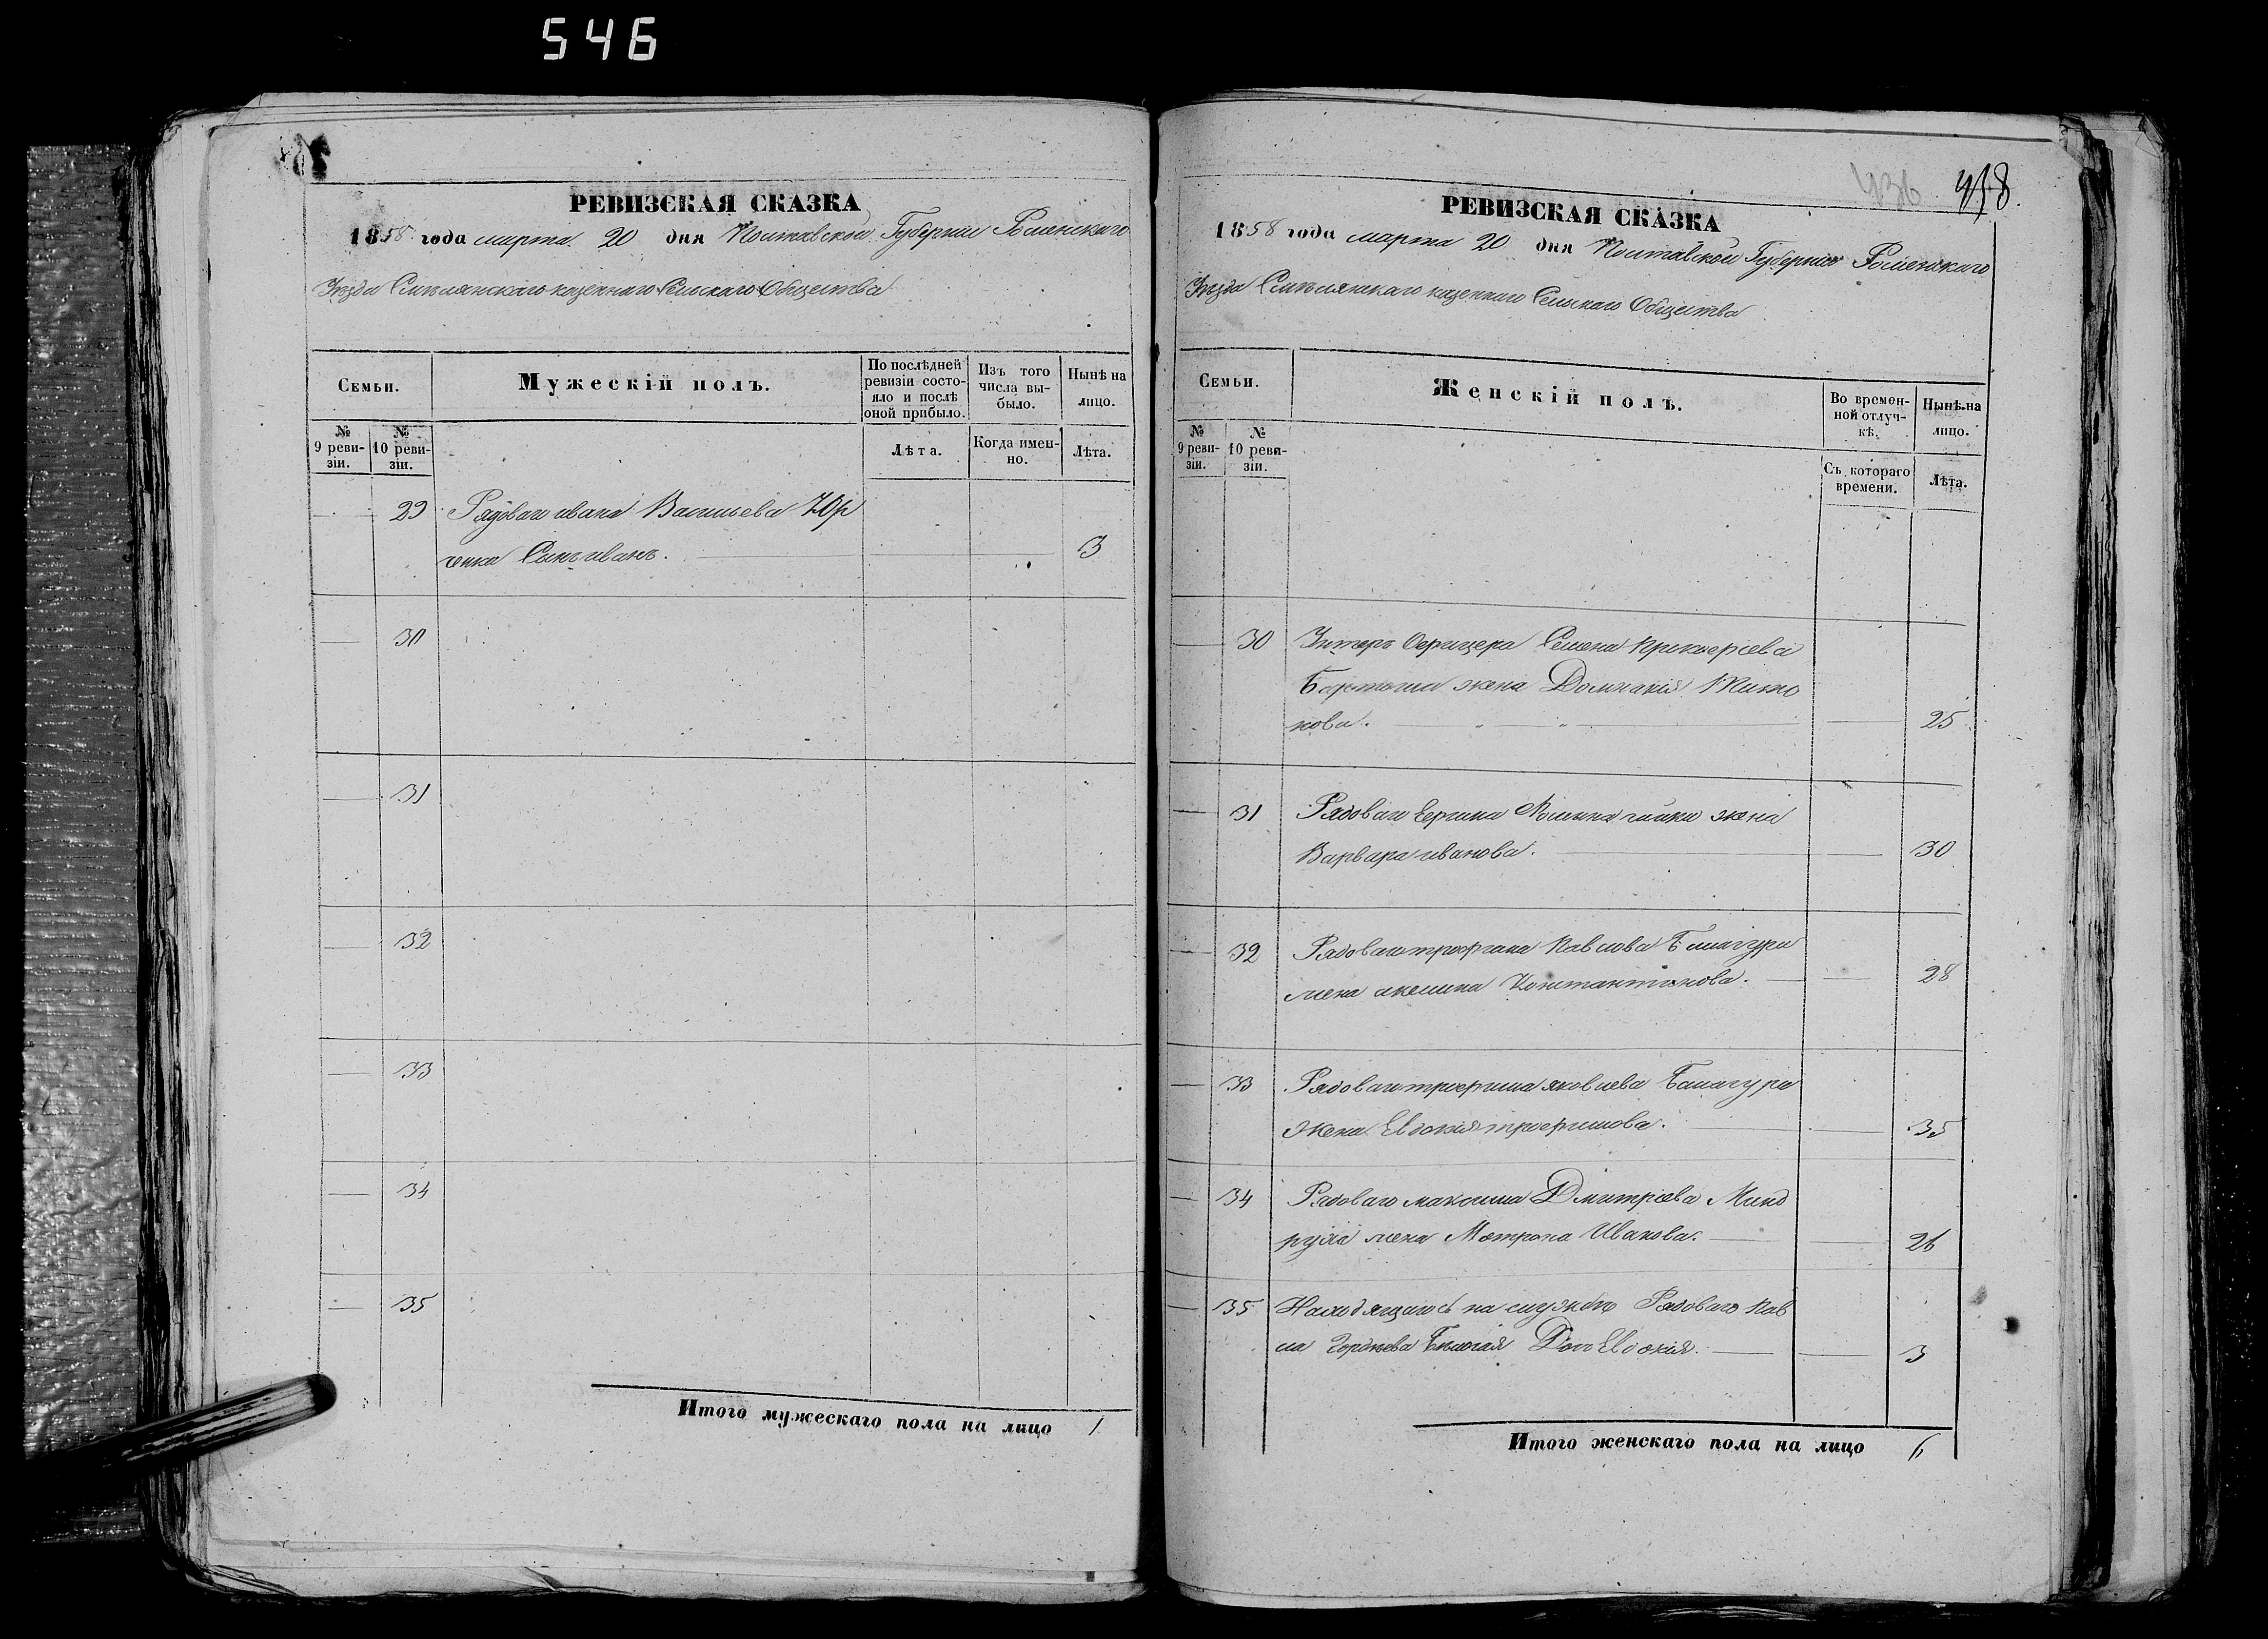 546
РЕВИЗСКАЯ СКАЗКА
1858 года марта 20 дня Полтавской Губернии Роменскаго
Уѣзда Смѣлянскаго казеннаго Сельскаго Общества
Семьи.
Мужескій полъ.
По послѣдней ревизіи состояло и послѣ оной прибыло.
Изъ того числа выбыло.
Нынѣ на лицо.
№ 9 ревизіи.
№ 10 ревизіи.
Лѣта.
Когда именно.
Лѣта.
29 Рядоваго ивана Васильева Юр
ченка Сынъ иванъ. 3
30
31
32
33
34
35
Итого мужескаго пола на лицо 1
436 458.
РЕВИЗСКАЯ СКАЗКА
1858 года марта 20 дня Полтавской Губернии Роменскаго
Уѣзда Смѣлянскаго казеннаго Сельскаго Общества
Семьи.
Женскій полъ.
Во временной отлучкѣ.
Нынѣ на лицо.
№ 9 ревизіи.
№ 10 ревизіи.
Съ котораго времени.
Лѣта.
30 Унтеръ Офицера Семена
жена Домникія
нова. 25
31 Рядоваго жена
Варвара иванова. 30
32 Рядоваго трофима Павлова
жена акилина Константинова. 28
33 Рядоваго трофима яковлева Балагура
Жена Евдокія трофимова. 35
34 Рядоваго максима Дмитріева Минд
руля жена Мотрона Иванова. 26
35 Находящагося на службѣ Рядоваго Пав
ла Гордѣева Доч Евдокія. 3
Итого женскаго пола на лицо 6